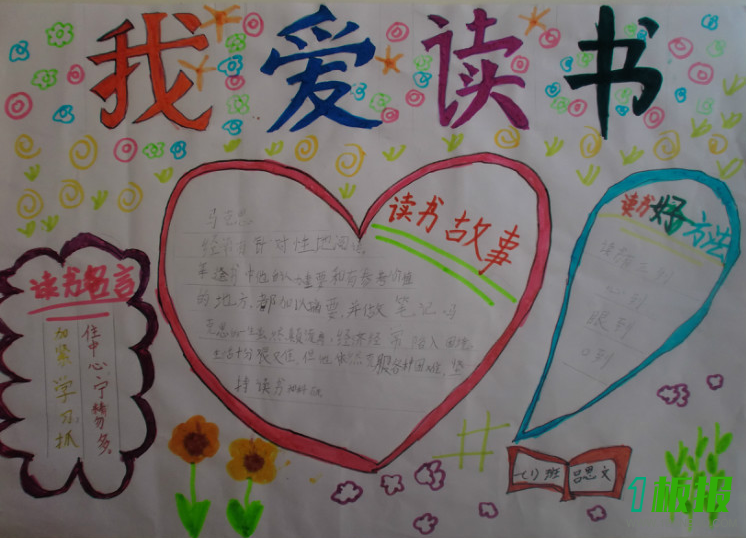 我爱读书
读书名言
加紧学习,抓
住中心,宁精勿多。
读书故事
马克思
经常有针对性地阅读
要和有参考价值
的地方,都加以摘要,并做笔记
克思的一生虽然颠 经济经常陷入困境
生活十分 但他依然克服各种困难,坚
持读书
读书好方法
读书三到
心到
眼到
口到
一(1)班 吕思文
1板报